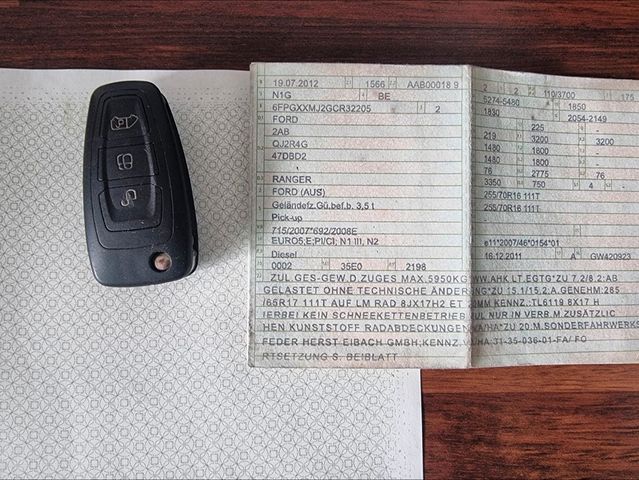 19.07.2012 1566 AAB00018 9
N1G BE
6FPGXXMJ2GCR32205 2
FORD
2AB
QJ2R4G
47DBD2
RANGER
FORD (AUS)
Geländefz.Gü.bef.b. 3,5 t
Pick-up
715/2007*692/2008E
EURO5;E;PI/CI; N1 III, N2
Diesel
0002 35E0 2198
2 2 110/3700 175
5274-5480 1850
1830 2054-2149
225 -
219 3200 3200
1480 1800 -
1480 1800 -
76 2775 76
3350 750 4 -
255/70R16 111T
255/70R16 111T
e11*2007/46*0154*01
16.12.2011 A GW420923
ZUL.GES-GEW.D.ZUGES MAX.5950KG*WW.AHK LT.EGTG*ZU 7.2/8.2:AB
GELASTET OHNE TECHNISCHE ÄNDERUNG*ZU 15.1/15.2:A.GENEHM:285
/65R17 111T AUF LM RAD 8JX17H2 ET 20MM KENNZ.:TL6119 8X17 H
IERBEI KEIN SCHNEEKETTENBETRIEB NUR IN VERB.M.ZUSÄTZLIC
HEN KUNSTSTOFF RADABDECKUNGEN VA/HA*ZU 20.M.SONDERFAHRWERK
FEDER HERST EIBACH GMBH;KENNZ.VA/HA:31-35-036-01-FA/ FO
RTSETZUNG S. BEIBLATT